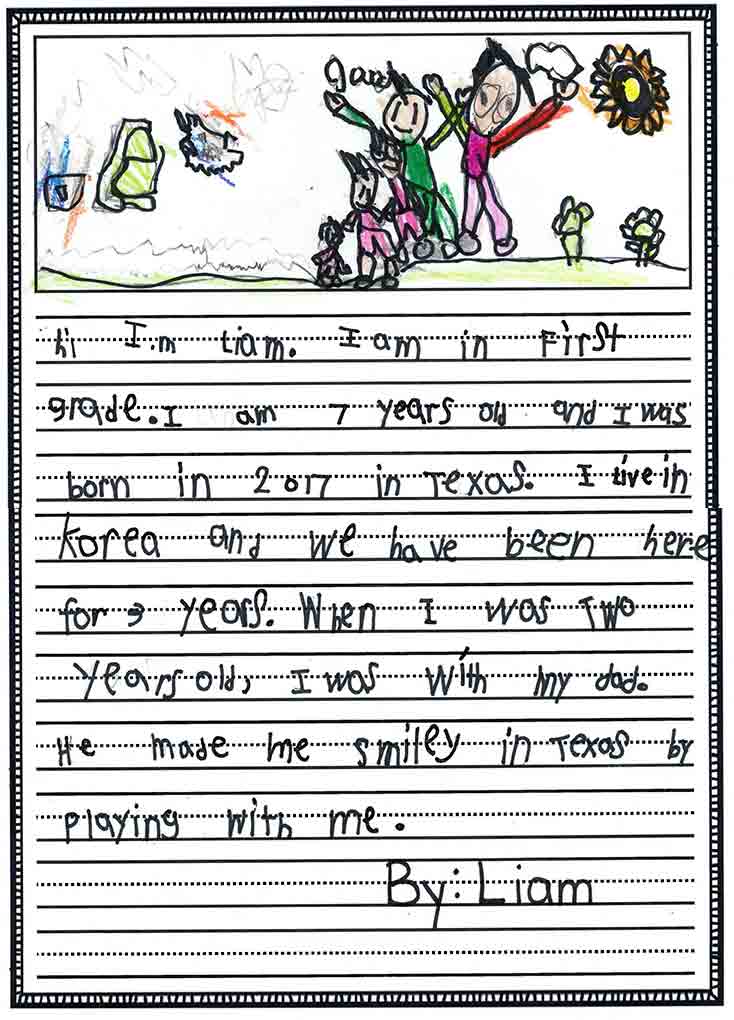 hi I.m Liam. I am in First
grade. I am 7 years old and I was
born in 2017 in Texas. I live in
Korea and we have been here
for 3 years. When I was Two
years old, I was With my dad.
He made me smiley in Texas by
playing with me.
By: Liam